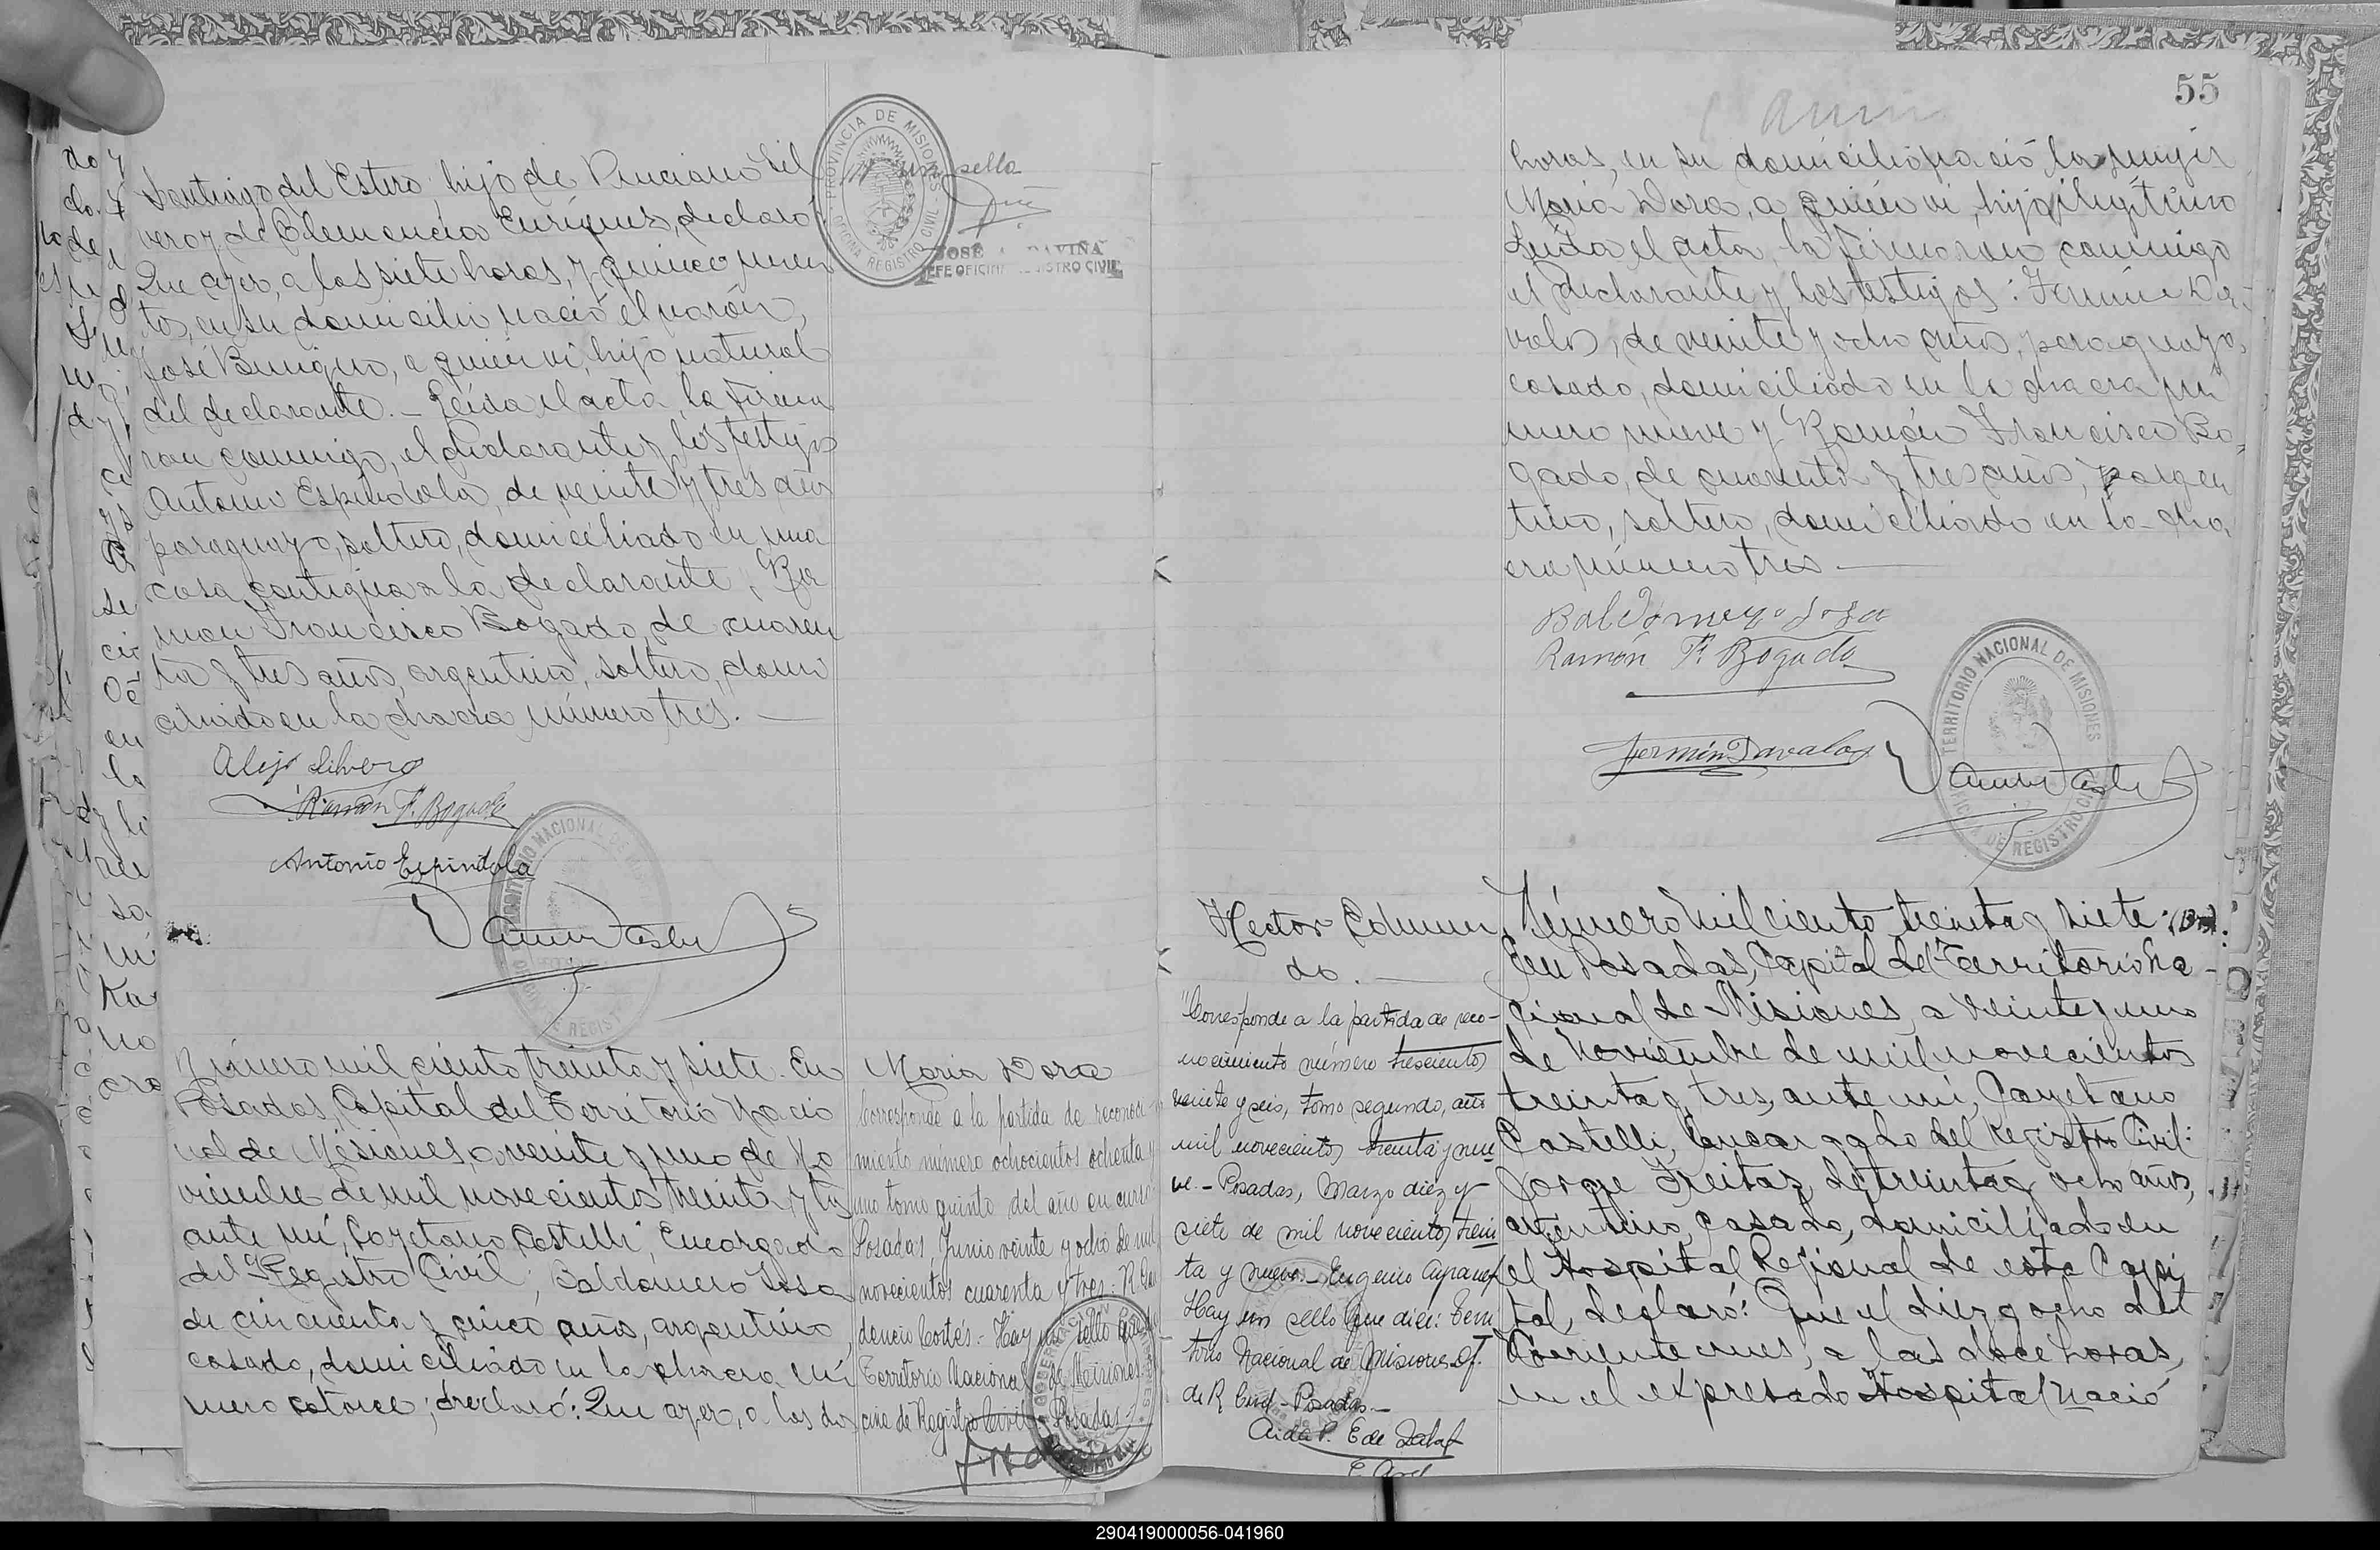 Santiago del Estero, hijo de Ponciano Sil
vero y de Clemencia Enriques, declaró
Que ayer, a las siete horas, y quince minu
tos, en su domicilio nació el varón,
José Benigno, a quien vi, hijo natural
del declarante. — Leída el acta, la firma
ron conmigo, el declarante y los testigos
Antonio Espíndola, de veinte y tres años
paraguayo, soltero, domiciliado en una
casa contigua a la declarante, Ra
mon Francisco Bogado, de cuaren
ta y tres años, argentino, soltero, domi
ciliado en la chacra número tres. —
Alejo Silvero
Ramón F. Bogado
Antonio Espindola
PROVINCIA DE MISIONES
OFICINA REGISTRO CIVIL
sello
JOSE
JEFE OFICINA REGISTRO CIVIL
Número mil ciento treinta y siete. En
Posadas, Capital del Territorio Nacio
nal de Misiones, a veinte y uno de No
viembre de mil novecientos treinta y tres
ante mí, Cayetano Castelli, Encargado
del Registro Civil; Baldomero Sosa
de cincuenta y cinco años, argentino
casado, domiciliado en la chacra nú
mero catorce; declaró: Que ayer, a las dos
Maria Dora
Corresponde a la partida de reconoci
miento número ochocientos ochenta y
uno tomo quinto del año en curso
Posadas, Junio veinte y ocho de mil
novecientos cuarenta y tres.
dencio Cortés. - Hay un sello
Territorio Nacional de Misiones
cina de Registro Civil - Posadas -
55
horas, en su domicilio nació la mujer
María Dora, a quien vi, hija ilegítima
Leída el acta, la firmaron conmigo
el declarante y los testigos: Fermin Da-
valos, de veinte y ocho años, paraguayo,
casado, domiciliado en la chacra nú
mero nueve y Ramón Francisco Bo-
gado, de cuarenta y tres años, argen
tino, soltero, domiciliado en la cha
cra número tres —
Baldomero Sosa
Ramón F. Bogado
Fermin Davalos
TERRITORIO NACIONAL DE MISIONES
DE REGISTRO CIVIL
Hector Edmun
do. —
"Corresponde a la partida de reco-
nocimiento número trescientos
veinte y seis, tomo segundo, año
mil novecientos treinta y nue
ve. - Posadas, Marzo diez y
siete de mil novecientos trein
ta y nueve. - Eugenio
Hay un sello que dice: Terri
torio Nacional de Misiones Of.
de R. Civil - Posadas. -
Aida P. E de
Número mil ciento treinta y siete. (Bis).
En Posadas, Capital del Territorio Na-
cional de Misiones, a veinte y uno
de Noviembre de mil novecientos
treinta y tres, ante mí, Cayetano
Castelli, Encargado del Registro Civil:
Jorge Freitas, de treinta y ocho años,
argentino, casado, domiciliado en
el Hospital Regional de esta Capi
tal, declaró: Que el diez y ocho del
corriente mes, a las doce horas,
en el expresado Hospital nació
290419000056-041960